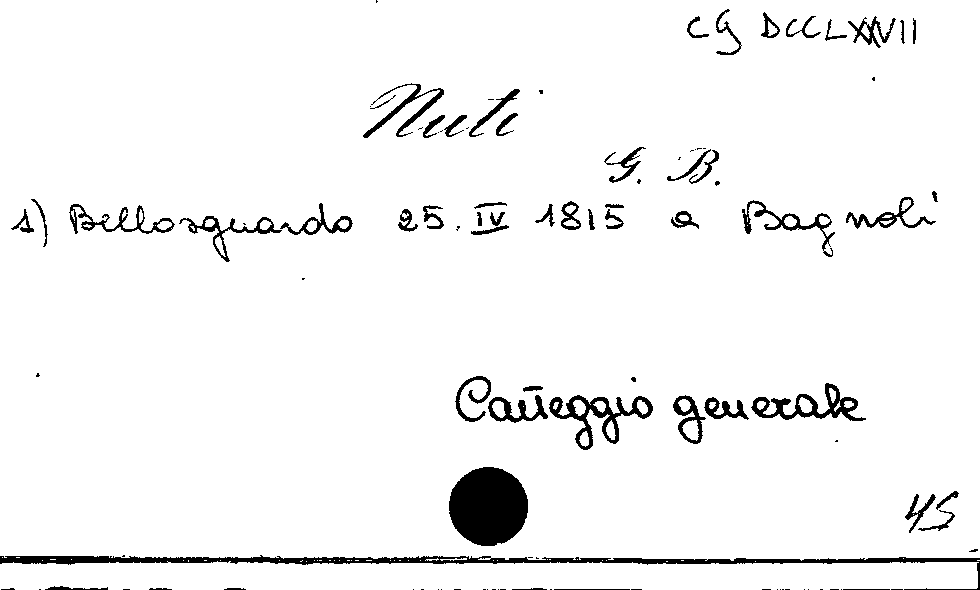 CG DCCLXXVII
Nuti
G. B.
1) Bellosguardo 25. IV 1815 a Bagnoli
Carteggio generale
45